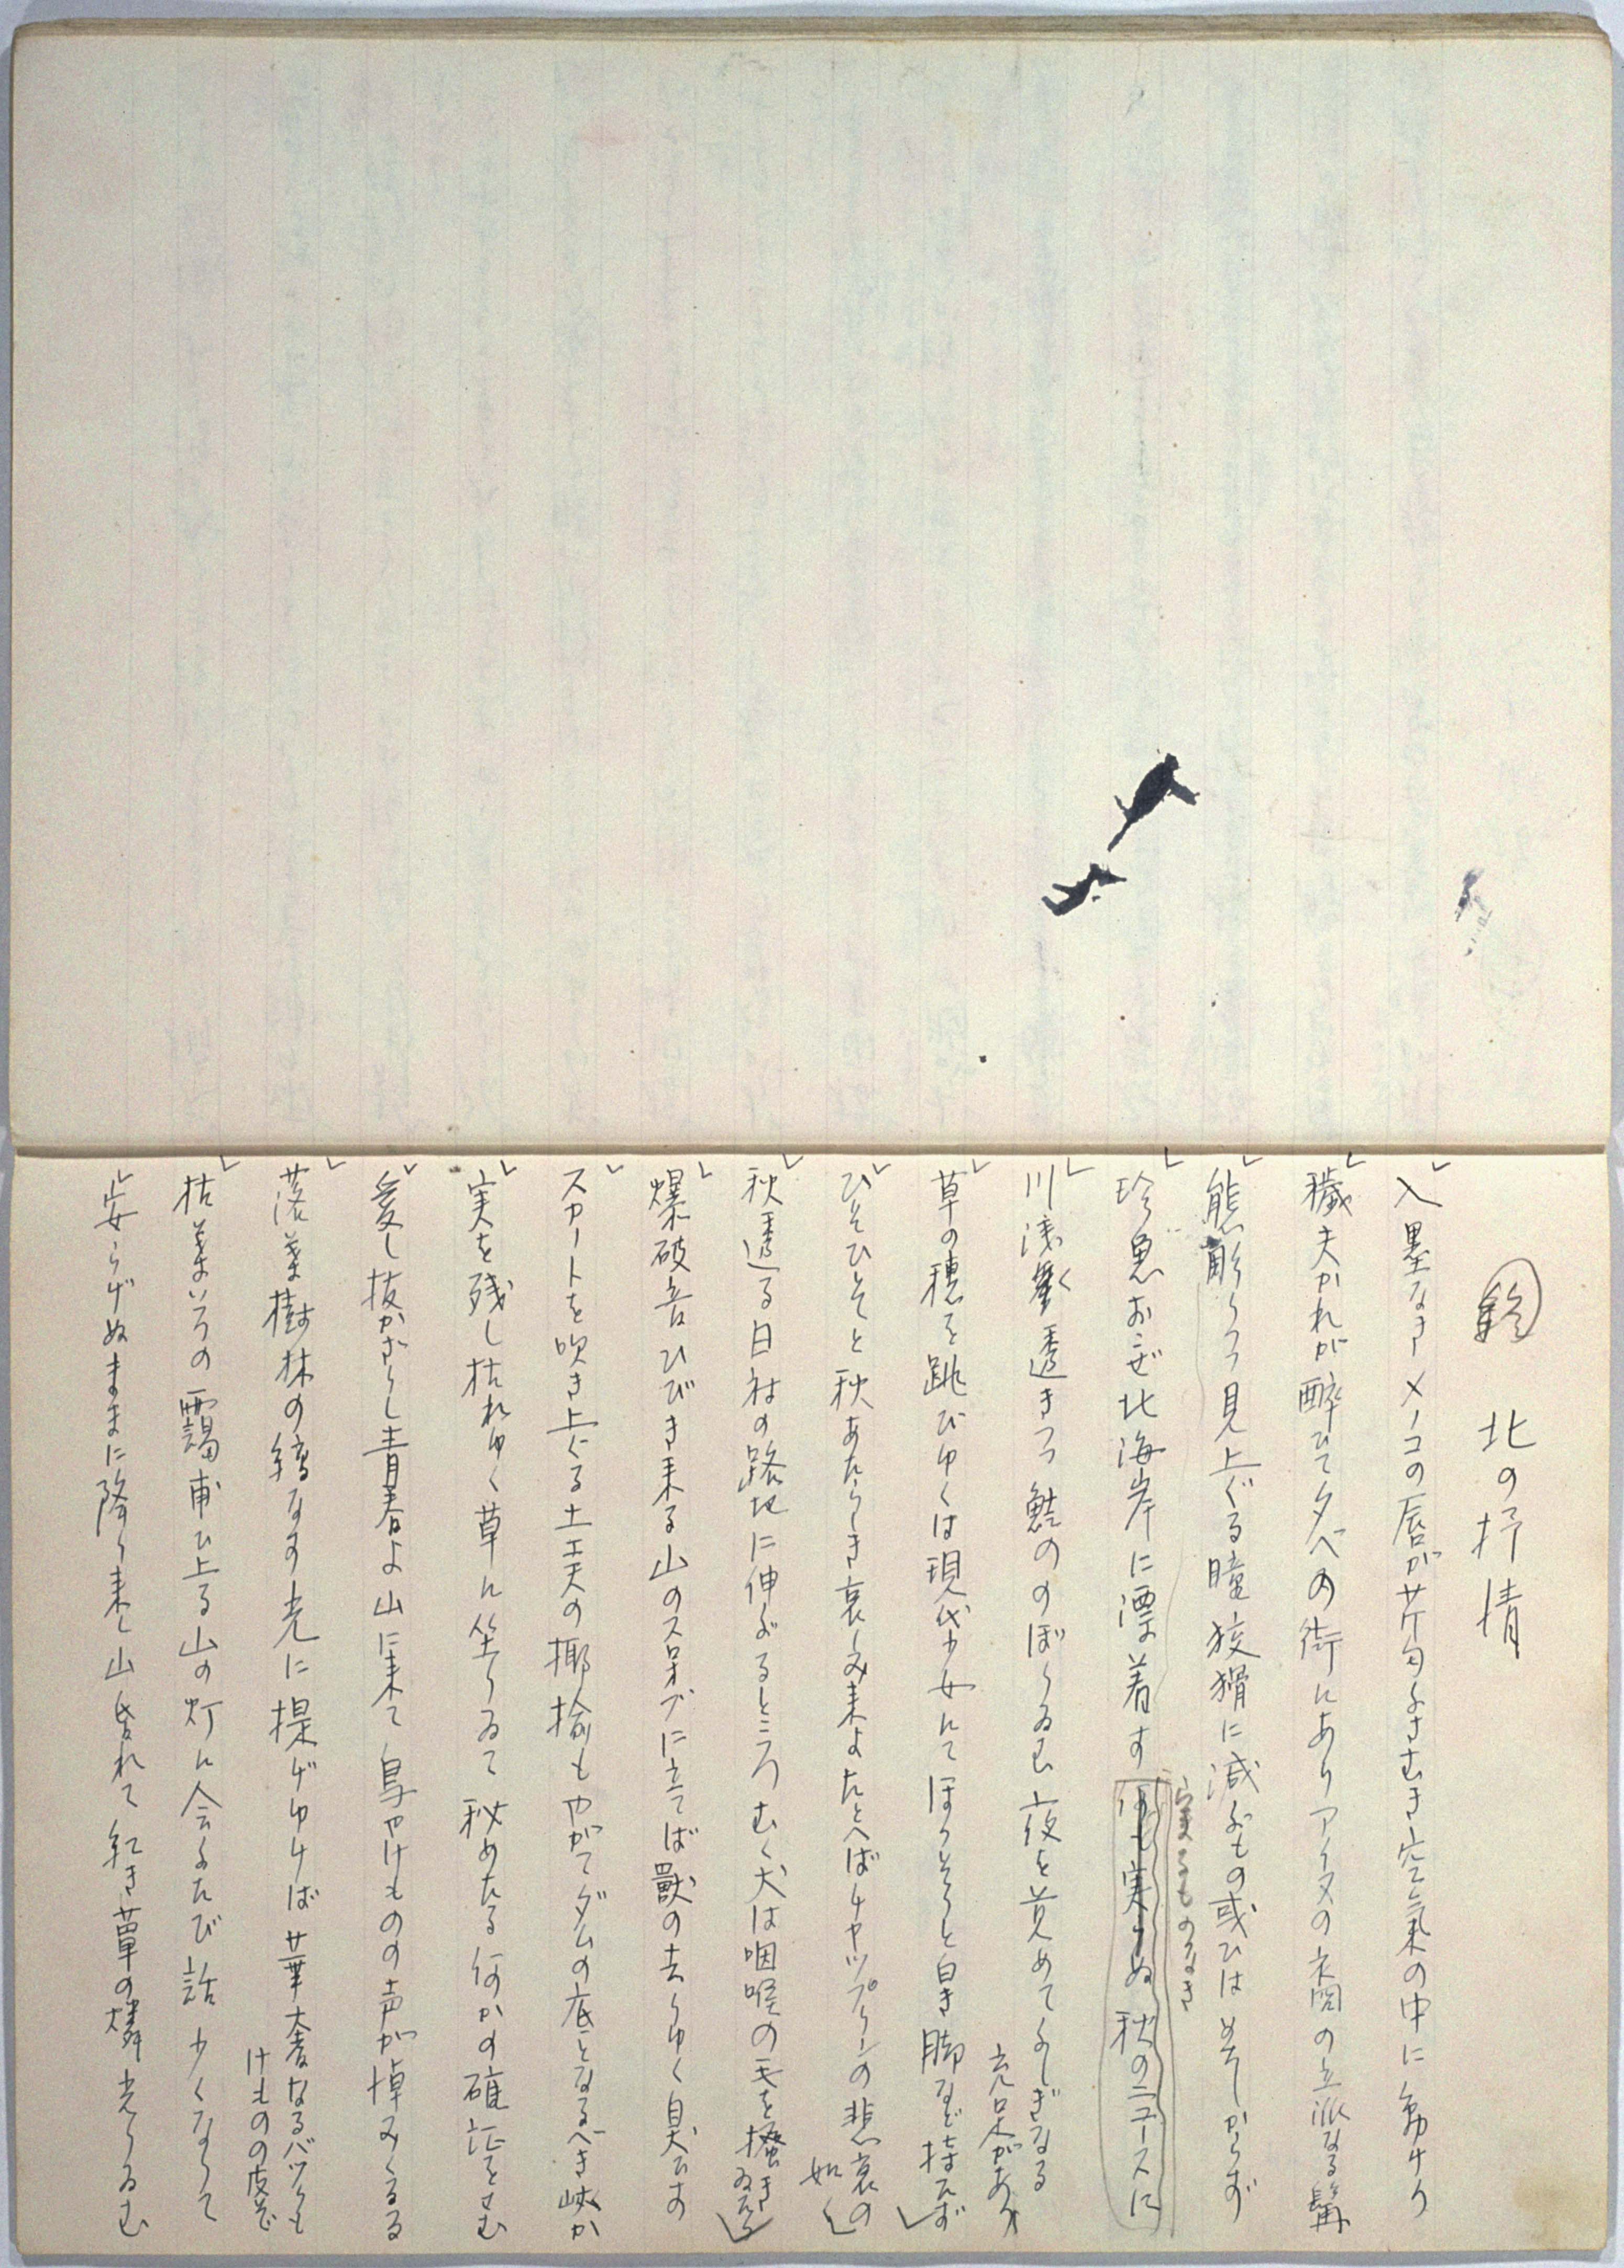 北の抒情
入墨なきメノコの唇が芹匂ふさむき空気の中に動けり
穢夫かれが酔ひて夕べの街にありアイヌの衣図の立派なる髯
熊彫りつつ見上ぐる瞳狡猾に滅ぶもの或ひは美しからず
珍魚おこぜ北海岸に漂着す何も実らぬ秋のニュースに
実るものなき
川浅く透きつつ鮭ののぼりゐむ夜を覚めてふしぎなる
充足があり
草の穂を跳びゆくは現代少女にてほつそりと白き脚など持たず
ひそひそと秋あたらしき哀しみ来よたとへばチヤツプリンの悲哀の
如く
秋透る日射の路地に伸ぶるところむく犬は咽喉の毛を掻きゐたる
爆破音ひびき来る山のスロープに立てば獣の去りゆく臭ひす
スカートを吹き上ぐる土工夫の揶揄もやがてダムの底となるべき峡か
実を残し枯れゆく草に坐りゐて秘めたる何かの確証をせむ
愛し抜かざりし青春よ山に来て鳥やけものの声が悼みくるる
落葉樹林の縞なす光に提げゆけば華奢なるバツグも
けものの皮ぞ
枯葉いろの靄甫ひ上る山の灯に会ふたび話少くなりて
安らげぬままに降り来し山昏れて乾き草の燐光りゐむ